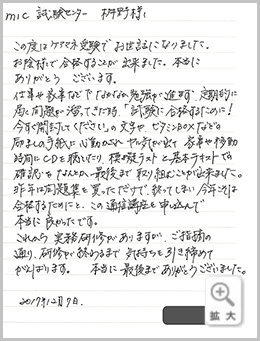 mic 試験センター 桝野様
この度はケアマネ受験でお世話になりました。
お陰様で合格することが出来ました。本当に
ありがとう ございます。
仕事や家事などでなかなか勉強が進まず、定期的に
届く問題を溜ってきた時、「試験に合格するために!
今すぐ開封してください」の文字や、ビタミンBOXなどの
励ましの手紙に心動かされ やる気が出て 家事や移動
時間にCDを聴いたり、模擬テストと基本テキストでの
確認をなんとか最後まで取り組むことが出来ました。
昨年は問題集を買っただけで終ってしまい 今年こそは
合格するためにと、この通信講座を申し込んで
本当に良かったです。
これから実務研修がありますが、ご指摘の
通り、研修が終わるまで 気持ちを引き締めて
がんばります。 本当に最後までありがとうございました。
2017年12月9日
拡大